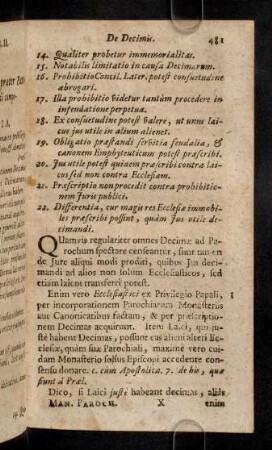 De Decimis. 481
14. Qualiter probetur immemorialitas.
15. Notabilis limitatio in causa Decimarum.
16. Prohibitio Concil. Later. potest consuetudine
abrogari.
17. Illa prohibitio videtur tantùm procedere in
infeudatione perpetua.
18. Ex consuetudine potest valere, ut unus lai-
cus jus utile in alium alienet.
19. Obligatio præstandi servitia feudalia, &
canonem Emphyteuticum potest præscribi.
20. Jus utile potest quidem præscribi contra lai-
cus sed non contra Ecclesiam.
21. Præscriptio non procedit contra prohibitio-
nem Juris publici.
22. Differentia, cur magis res Ecclesiæ immobi-
les præscribi possint, quàm jus utile de-
cimandi.
QUamvis regulariter omnes Decimæ ad Pa-
rochum spectare censeantur, sunt tamen
de Jure aliqui modi proditi, quibus Jus deci-
mandi ad alios non solum Ecclesiasticos, sed
etiam laicos transferri potest.
Enim vero Ecclesiastici ex Privilegio Papali, 1
per incorporationem Parochiarum Monasteriis
aut Canonicatibus factam, & per præscriptio-
nem Decimas acquirunt. Item Laici, qui ju-
stè habent Decimas, possunt eas alieni alteri Ec-
clesiæ, quàm suæ Parochiali, maximè vero cui-
dam Monasterio solius Episcopi accedente con-
sensu donare. c. cùm Apostolica. 7. de his, quæ
fiunt à Præl.
Dico, si Laici justè habeant decimas, aliàs
MAN. PAROCH. X enim